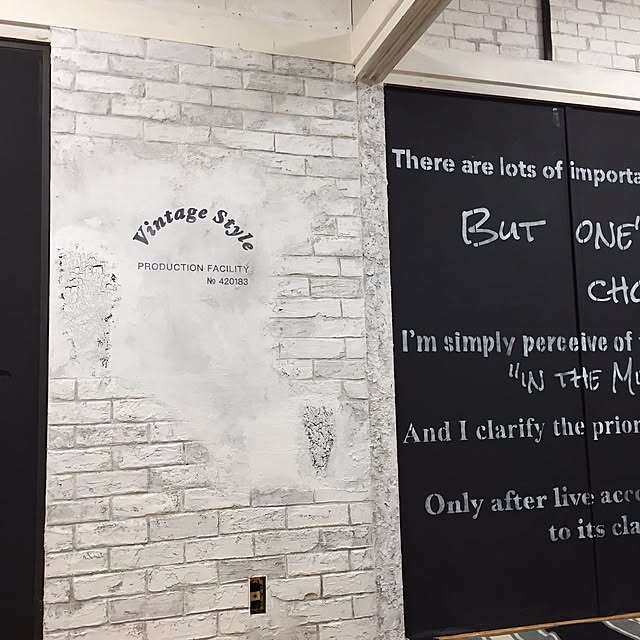 Vintage Style
PRODUCTION FACILITY
№ 420183
There are lots of importa
BUT ONE'
CHO
I'm simply perceive of
"IN THE M
And I clarify the prior
Only after live acco
to its cla